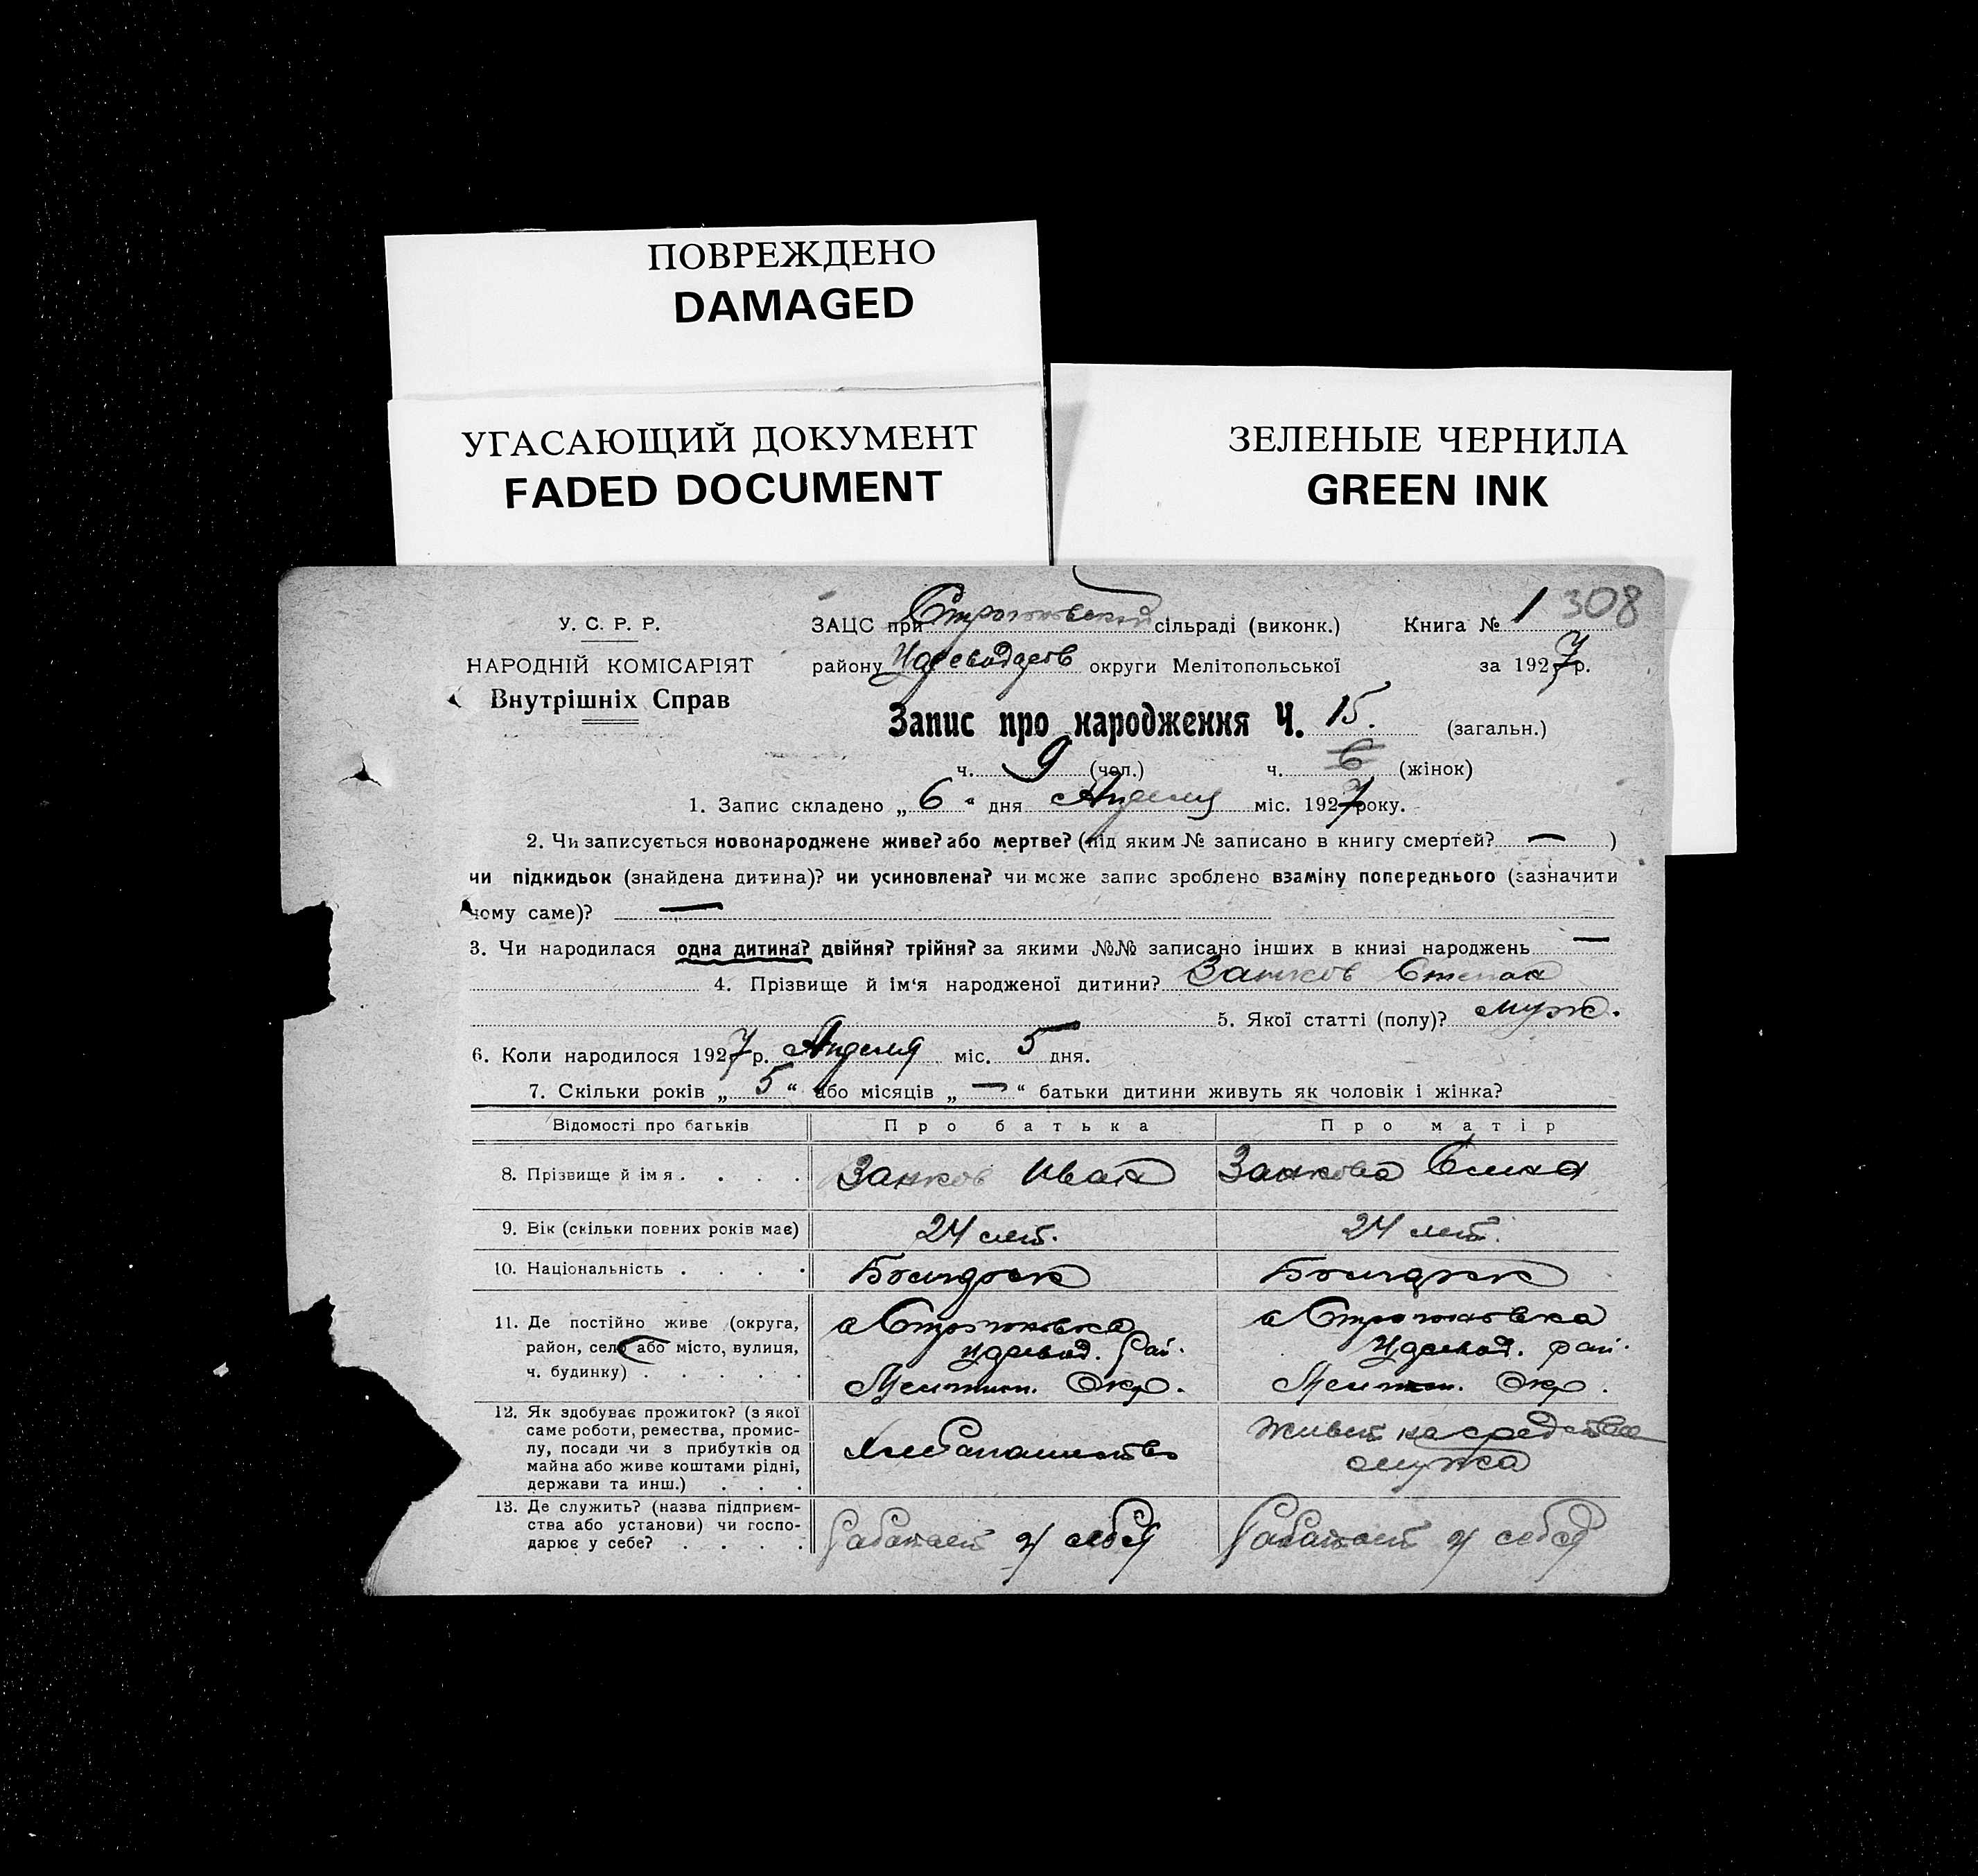 ПОВРЕЖДЕНО
DAMAGED
УГАСАЮЩИЙ ДОКУМЕНТ
FADED DOCUMENT
ЗЕЛЕНЫЕ ЧЕРНИЛА
GREEN INK
У. С. Р. Р.
НАРОДНІЙ КОМІСАРІЯТ
Внутрішніх Справ
ЗАЦС при сільраді (виконк.) Книга № 1 308
району округи Мелітопольської за 1927 р.
Запис про народження Ч. 15. (загальн.)
ч. 9 (чол.) ч. 6 (жінок)
1. Запис складено „ 6 “ дня Апреля міс. 1927 року.
2. Чи записується новонароджене живе? або мертве? (під яким № записано в книгу смертей? — )
чи підкидьок (знайдена дитина)? чи усиновлена? чи може запис зроблено взаміну попереднього (зазначити
чому саме)? —
3. Чи народилася одна дитина? двійня? трійня? за якими №№ записано інших в книзі народжень —
4. Прізвище й ім‘я народженої дитини? Занков Степан
5. Якої статті (полу)? муж.
6. Коли народилося 1927 р. Апреля міс. 5 дня.
7. Скільки років „ 5 “ або місяців „ — “ батьки дитини живуть як чоловік і жінка?
Відомості про батьків Про батька Про матір
8. Прізвище й імя . . . . Занков Иван Занкова Елена
9. Вік (скільки повних років має) 24 лет. 24 лет.
10. Національність . . . . Болгарск Болгарск
11. Де постійно живе (округа,
район, село або місто, вулиця,
ч. будинку) . . . . .
с Строгоновка
Царевод. Рай.
Мелитоп. Окр.
с Строгоновка
Царевод. рай.
Мелитоп. Окр.
12. Як здобуває прожиток? (з якої
саме роботи, ремества, промис-
лу, посади чи з прибутків од
майна або живе коштами рідні,
держави та инш.) . . .
Хлебопашество
Живет на средства
мужа
13. Де служить? (назва підприєм-
ства або установи) чи госпо-
дарює у себе? . . . .
Работает у себя
Работает у себя